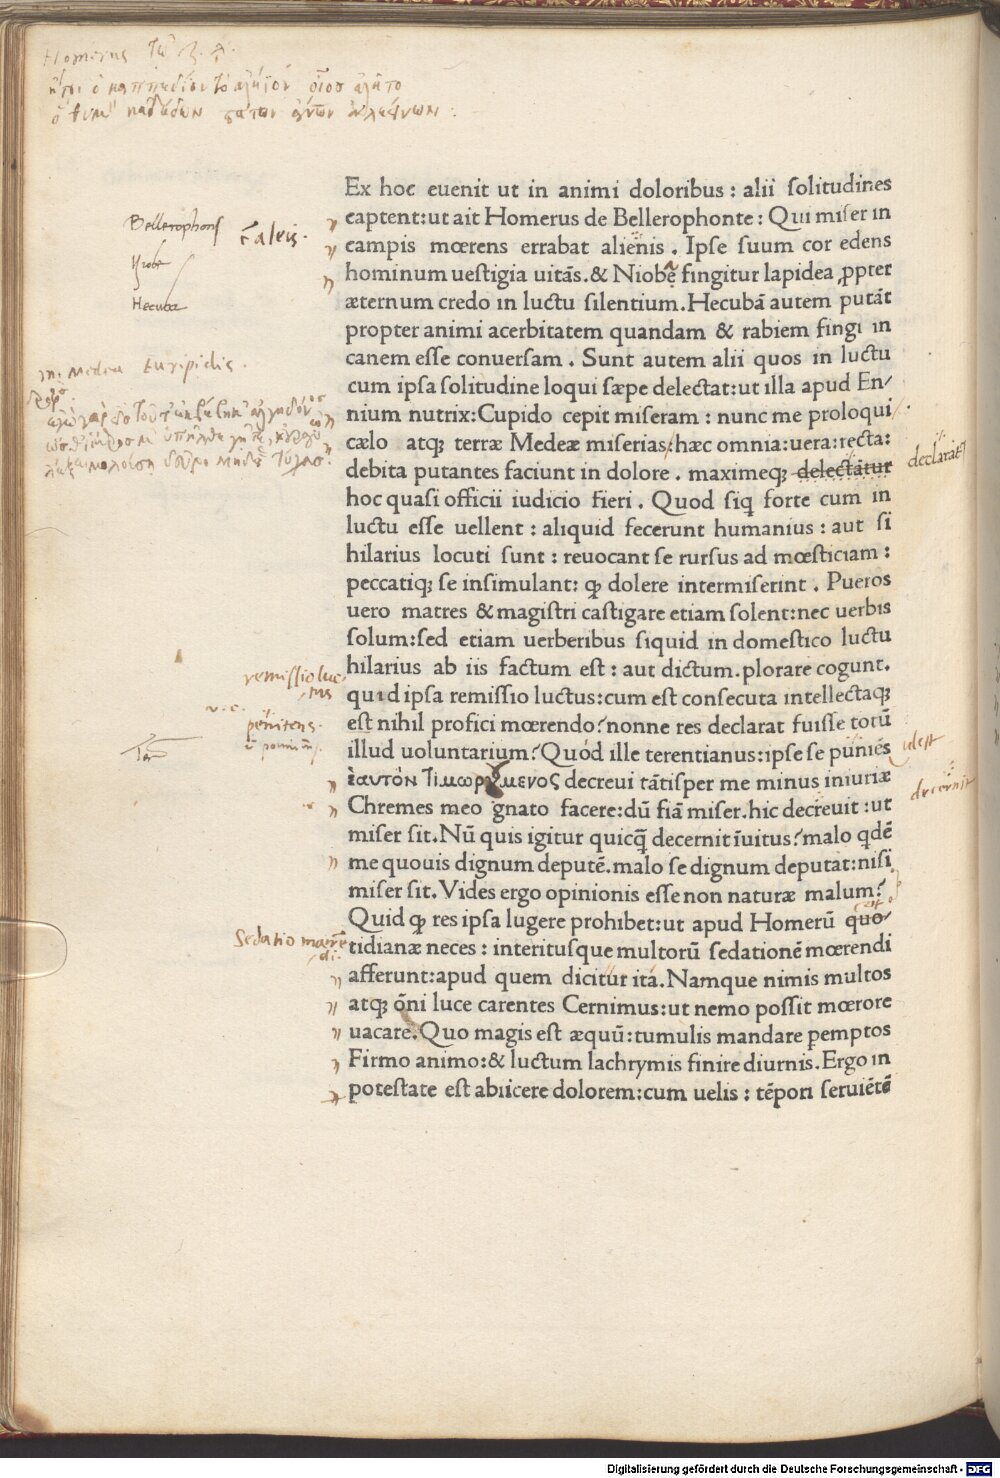 Homerus
Bellerophons
caleis.
Niobe
Hecuba
in Medea Euripidis.
Ex hoc euenit ut in animi doloribus : alii solitudines
captent:ut ait Homerus de Bellerophonte : Qui miser in
campis mœrens errabat alienis . Ipse suum cor edens
hominum uestigia uitās.& Niobę fingitur lapidea ꝓpter
æternum credo in luctu silentium.Hecubā autem putāt
propter animi acerbitatem quandam & rabiem fingi in
canem esse conuersam . Sunt autem alii quos in luctu
cum ipsa solitudine loqui sæpe delectat:ut illa apud En/
nium nutrix:Cupido cepit miseram : nunc me proloqui
cælo atqꝫ terræ Medeæ miserias/hæc omnia:uera:recta:
debita putantes faciunt in dolore . maximeqꝫ delectātur
declarat
hoc quasi officii iudicio fieri . Quod siq̃ forte cum in
luctu esse uellent : aliquid fecerunt humanius : aut si
hilarius locuti sunt : reuocant se rursus ad mœsticiam :
peccatiqꝫ se insimulant: ꝙ dolere intermiserint . Pueros
uero matres & magistri castigare etiam solent:nec uerbis
solum:sed etiam uerberibus siquid in domestico luctu
hilarius ab iis factum est : aut dictum.plorare cogunt.
remissio luc
tus
quid ipsa remissio luctus:cum est consecuta intellectaqꝫ
v.c.
penitens.
est nihil profici mœrendo?nonne res declarat fuisse totū
illud uoluntarium?Quód ille terentianus:ipse se puniēs
idest
ἑαυτὸν Τιμωρȣμενος decreui tātisper me minus iniuriæ
decernit
Chremes meo gnato facere:dū fiā miser.hic decreuit :ut
miser sit.Nū quis igitur quicq̃ decernit īuitus?malo qdē
me quouis dignum deputē.malo se dignum deputat:nisi
miser sit.Vides ergo opinionis esse non naturæ malum?
Quid ꝙ res ipsa lugere prohibet:ut apud Homerū quo/
Sedatio mœrē
di.
tidianæ neces : interitusque multorū sedationē mœrendi
afferunt:apud quem dicitur ita.Namque nimis multos
atqꝫ ōni luce carentes Cernimus:ut nemo possit mœrore
uacare.Quo magis est æquū:tumulis mandare pemptos
Firmo animo:& luctum lachrymis finire diurnis.Ergo in
potestate est abiicere dolorem:cum uelis : tēpori seruiētē
Digitalisierung gefördert durch die Deutsche Forschungsgemeinschaft - DFG